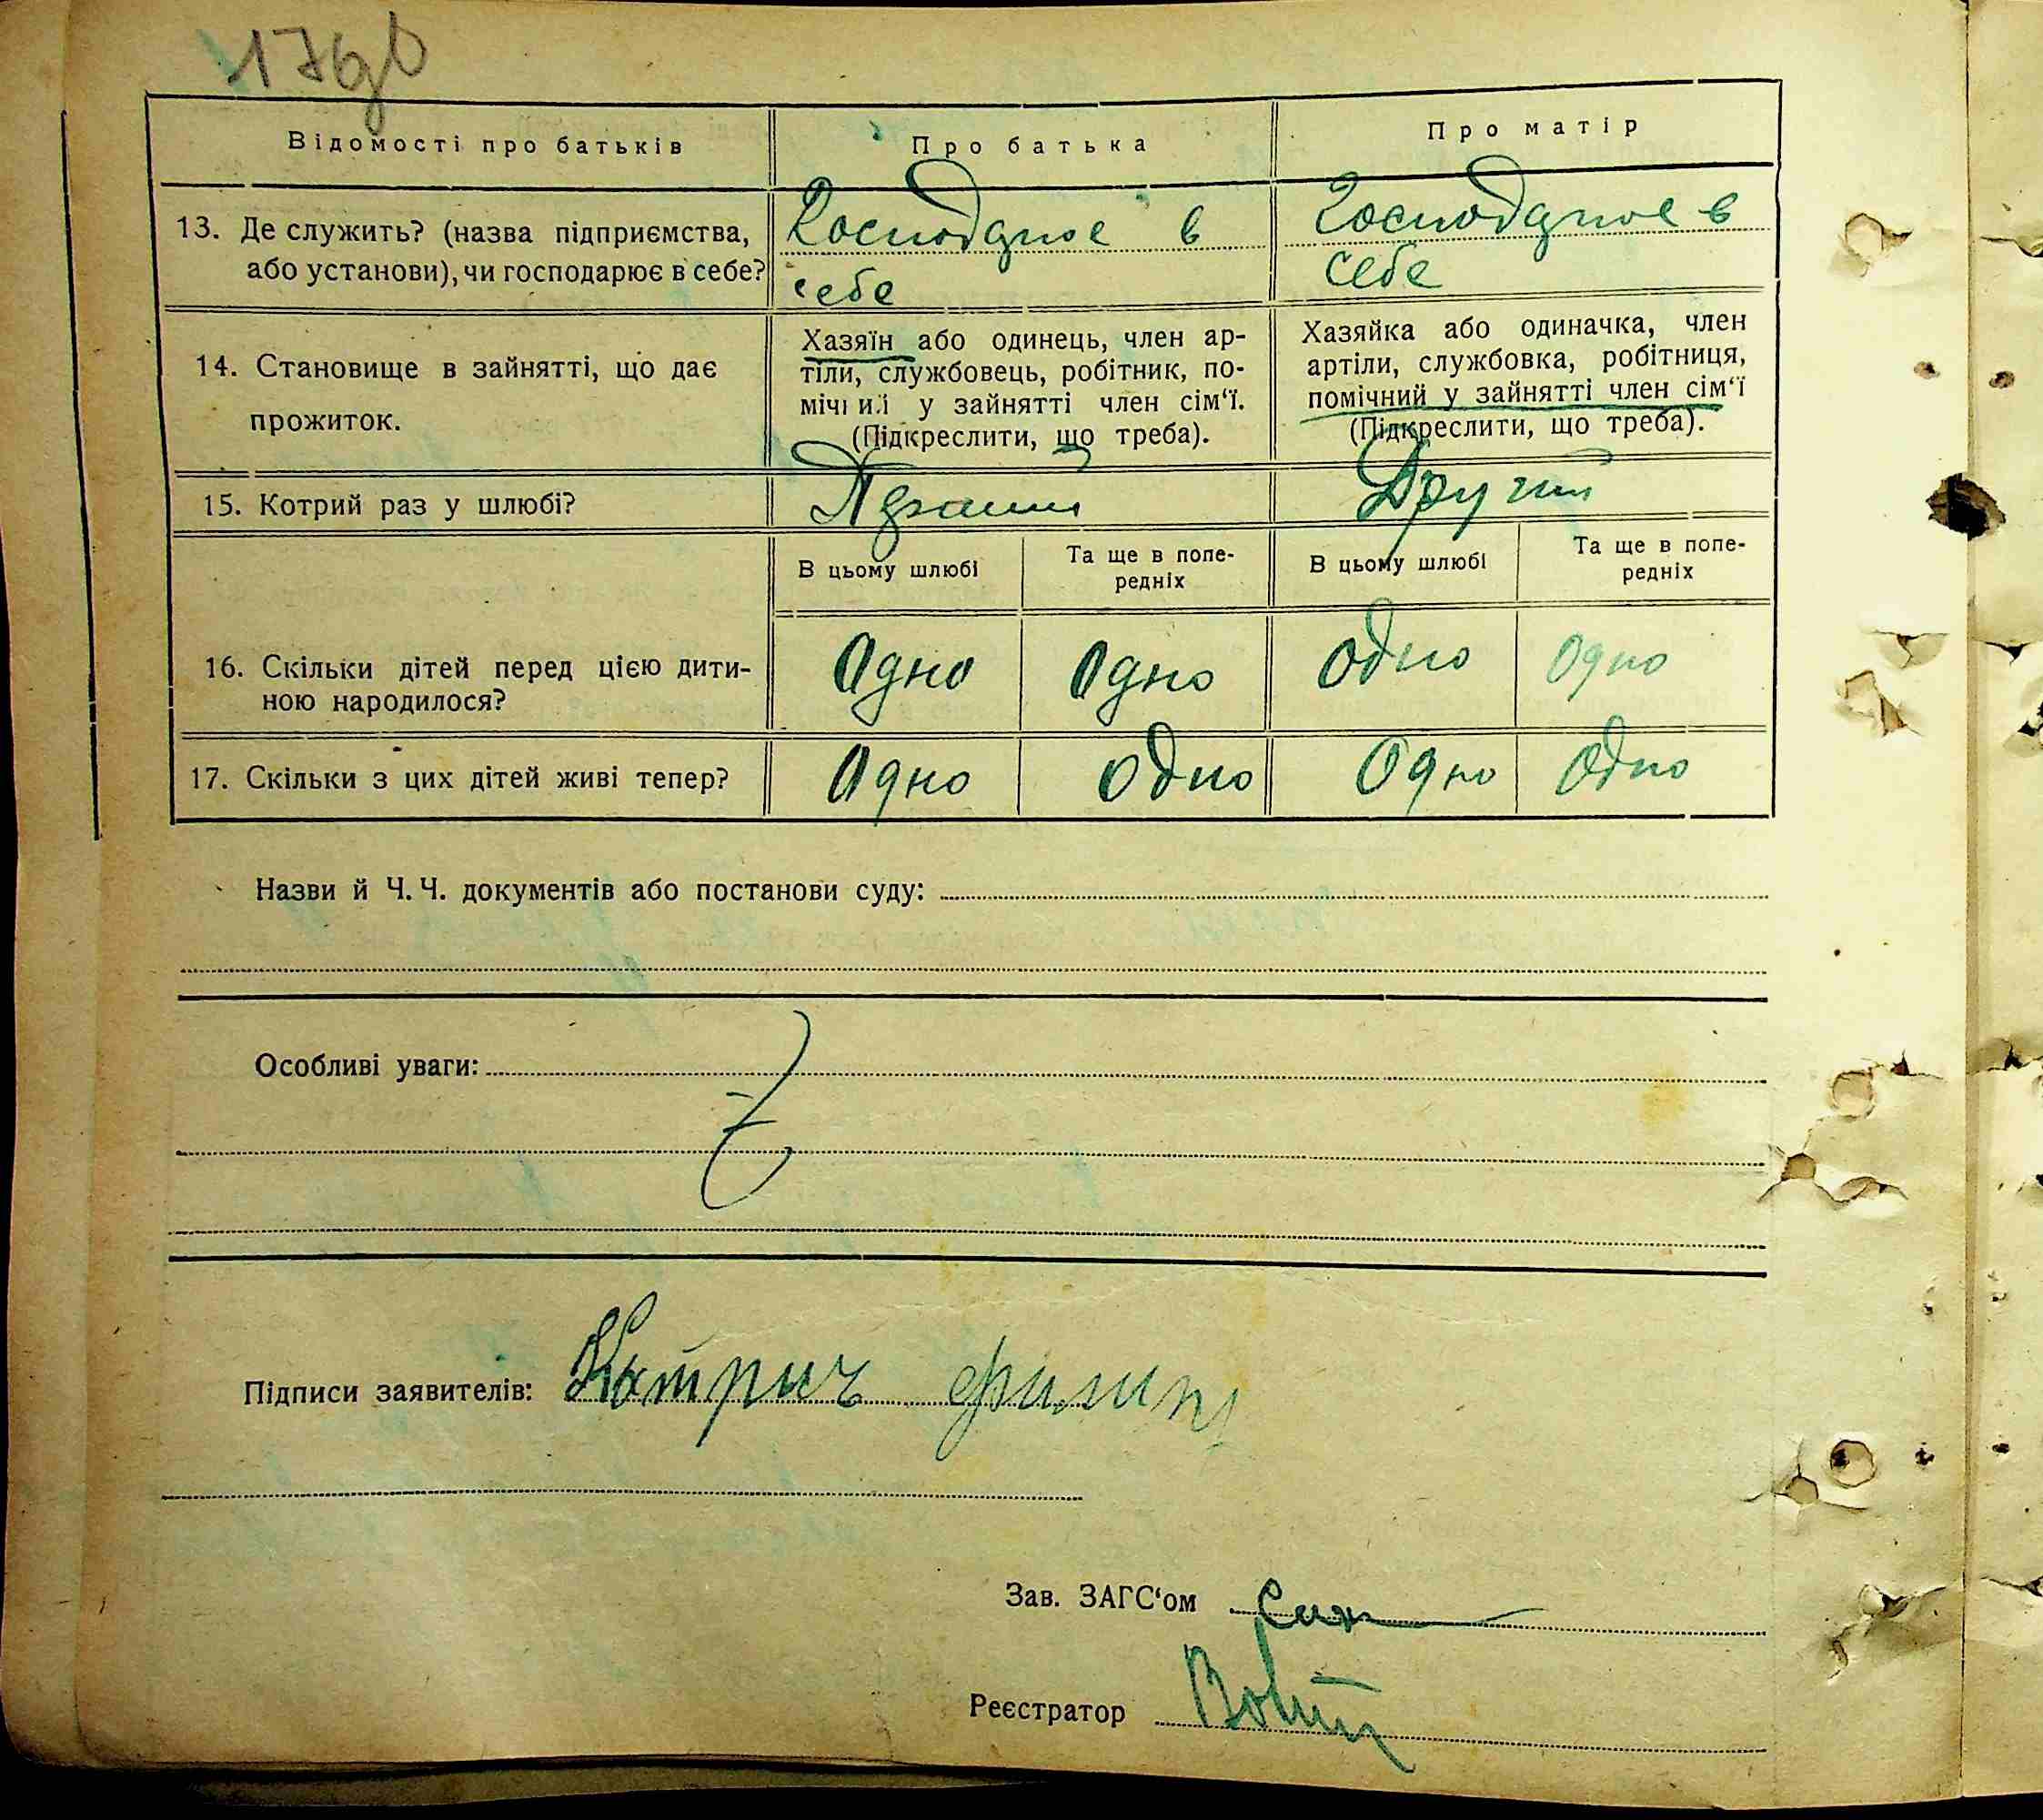 176
Відомості про батьків
Про батька
Про матір
13. Де служить? (назва підприємства,
або установи), чи господарює в себе?
Господарює в
себе
Господарює в
себе
14. Становище в зайнятті, що дає
прожиток.
Хазяїн або одинець, член ар-
тіли, службовець, робітник, по-
мічний у зайнятті член сім‘ї.
(Підкреслити, що треба).
Хазяйка або одиначка, член
артіли, службовка, робітниця,
помічний у зайнятті член сім‘ї
(Підкреслити, що треба).
15. Котрий раз у шлюбі?
Другий
В цьому шлюбі
Та ще в попе-
редніх
В цьому шлюбі
Та ще в попе-
редніх
16. Скільки дітей перед цією дити-
ною народилося?
Одно
Одно
Одно
Одно
17. Скільки з цих дітей живі тепер?
Одно
Одно
Одно
Одно
Назви й Ч. Ч. документів або постанови суду:
Особливі уваги:
Підписи заявителів: Катрич Филип
Зав. ЗАГС‘ом
Реєстратор